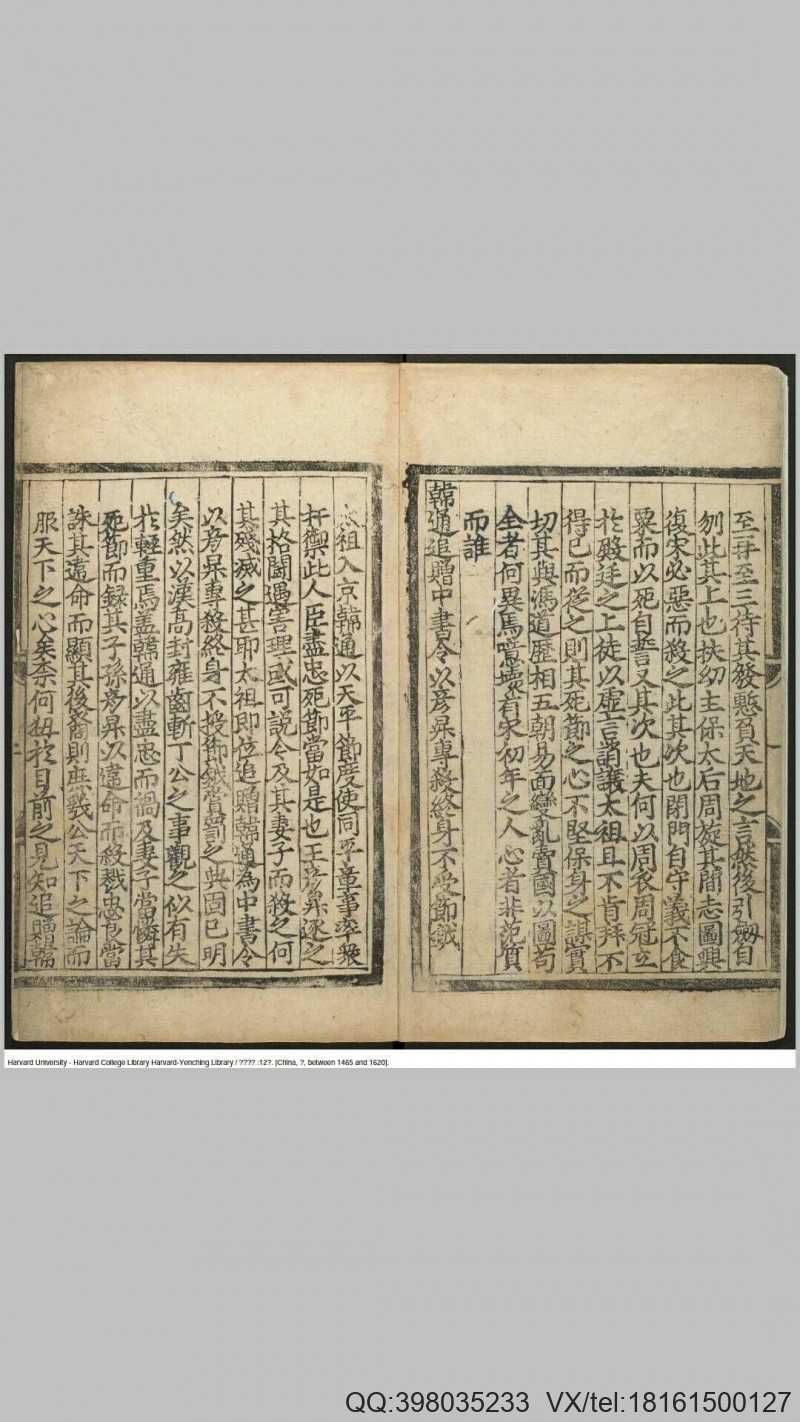 至再至三待其發慙負天地之言然後引劔自
刎此其上也扶幼主保太后周旋其間志圖興
復宋必惡而殺之此其次也閉門自守義不食
粟而以死自誓又其次也夫何以周衣周冠立
於殿廷之上徒以虛言誚議太祖且不肯拜不
得已而從之則其死節之心不堅保身之謀實
切其與馮道歷相五朝易面變亂賣國以圖苟
全者何異焉噫壞有宋初年之人心者非范質
而誰
韓通追贈中書令以彦昇專殺終身不受節鉞
祖入京韓通以天平節度使同平章事率衆
扞禦此人臣盡忠死節當如是也王彦昇逐之
其格鬬遇害理或可說今及其妻子而殺之何
其殘滅之甚耶太祖即位追贈韓通為中書令
以彦昇專殺終身不授節鉞賞罰之典固已明
矣然以漢高封雍齒斬丁公之事觀之似有失
於輕重焉盖韓通以盡忠而禍及妻子當憐其
死節而録其子孫彦昇以違命而殺戮忠良當
誅其違命而顯其後裔則庶幾公天下之論而
服天下之心矣柰何狃於目前之見知追贈韓
Harvard University - Harvard College Library Harvard-Yenching Library / ???? :12?. [China, ?, between 1465 and 1620].
QQ:398035233 VX/tel:18161500127